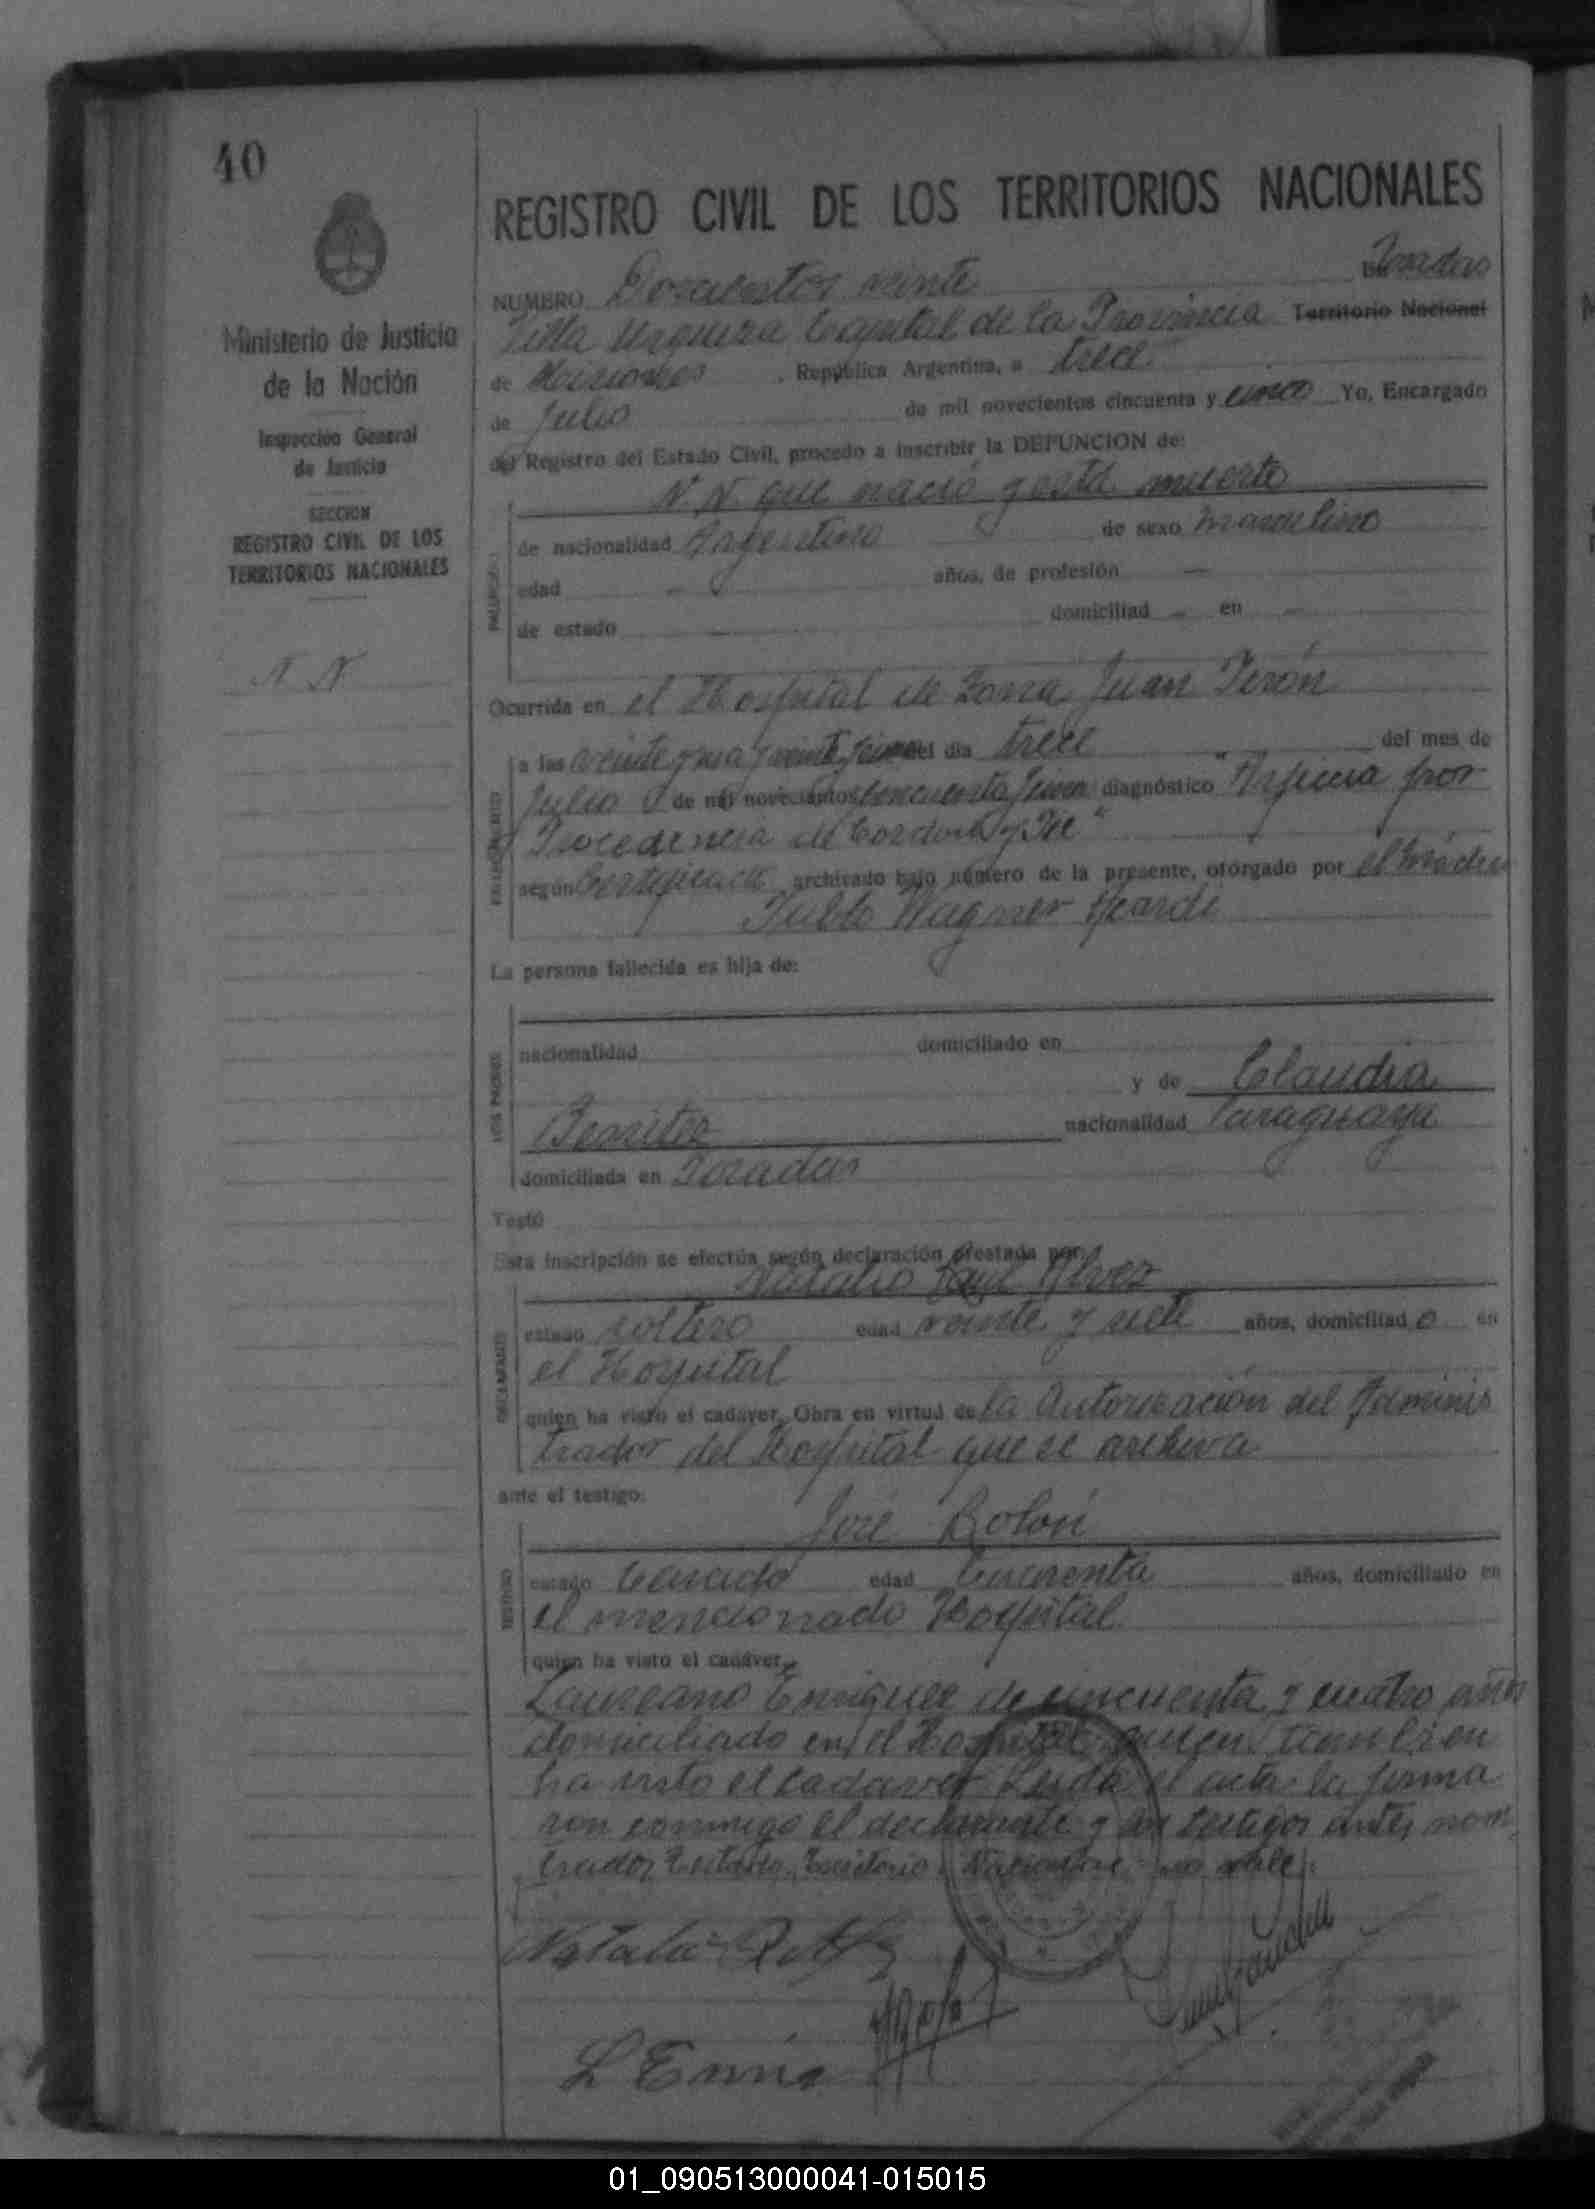 40
REGISTRO CIVIL DE LOS TERRITORIOS NACIONALES
NUMERO Doscientos veinte En Posadas
Villa Urquiza Capital de la Provincia Territorio Nacional
de Misiones, República Argentina, a trece
de Julio de mil novecientos cincuenta y cinco Yo, Encargado
del Registro del Estado Civil, procedo a inscribir la DEFUNCION de:
N. N. que nació y está muerto
FALLECIDO
de nacionalidad Argentino de sexo masculino
edad - años, de profesión -
de estado - domiciliad - en -
Ministerio de Justicia
de la Nación
Inspección General
de Justicia
SECCION
REGISTRO CIVIL DE LOS
TERRITORIOS NACIONALES
N N
Ocurrida en el Hospital de Zona Juan Perón
FALLECIMIENTO
a las veinte y una y veinte y cinco del día trece del mes de
Julio de mil novecientos cincuenta y cinco diagnóstico "Asficcia por
Procedencia de Cordon y Pie"
según Certificado archivado bajo número de la presente, otorgado por el Médico
Pablo Wagner
La persona fallecida es hija de:
LOS PADRES
nacionalidad domiciliado en
y de Claudia
Benitez nacionalidad Paraguaya
domiciliada en Posadas
Testó
Esta inscripción se efectúa según declaración prestada por:
Natalio Raul Alvez
DECLARANTE
estado soltero edad veinte y siete años, domiciliad o en
el Hospital
quien ha visto el cadáver. Obra en virtud de la Autorización del Adminis
trador del Hospital que se archiva
ante el testigo:
José Rolón
TESTIGO
estado Casado edad Cincuenta años, domiciliado en
el mencionado Hospital
quien ha visto el cadáver y
Laureano Enriquez de cincuenta y cuatro años
domiciliado en el Hospital quien tambien
ha visto el cadaver Leída el acta la firma
ron conmigo el declarante y los testigos antes nom
brados Testado: Territorio Nacional: no vale.
L Enriq
01_090513000041-015015